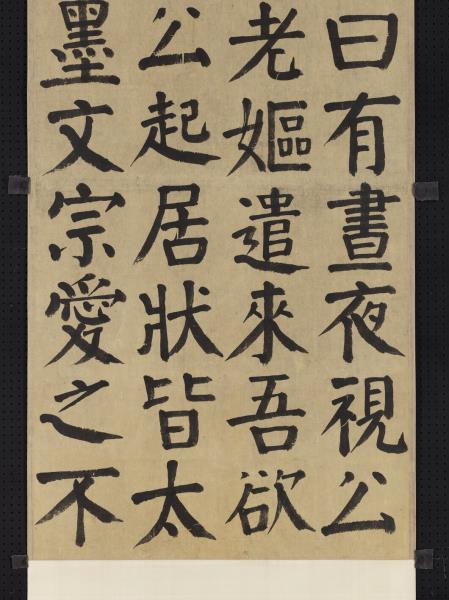 曰有晝夜視公
老嫗遣來吾欲
公起居狀皆太
墨文宗愛之不